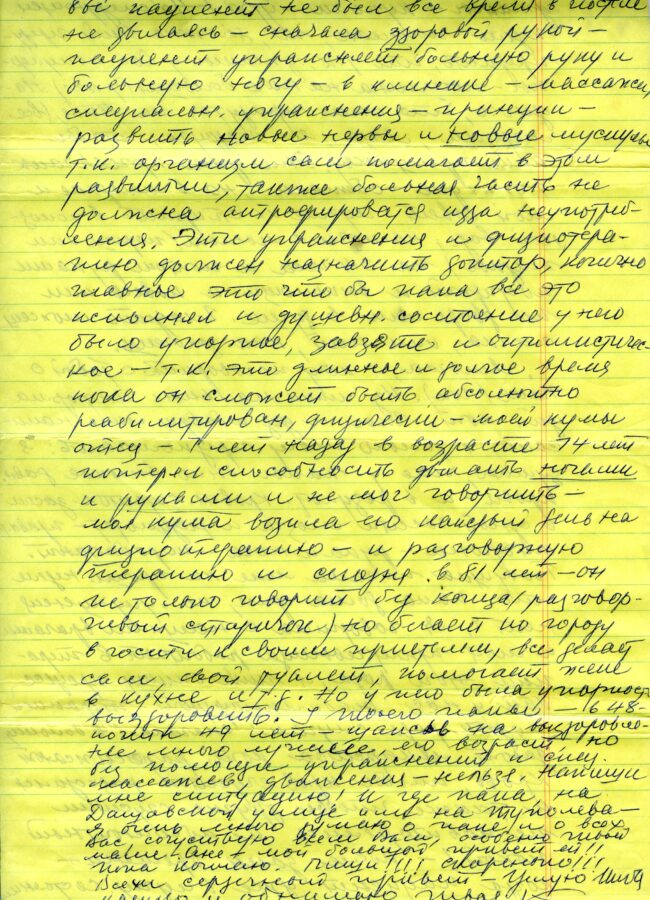 бы пациент не был все время в постели
не двигаясь – сначала здоровой рукой –
пациент упражняет больную руку и
больную ногу – в клинике – массажи,
специальн. упражнения – принцип –
развить новые нервы и новые мускулы
т.к. организм сам помагает в этом
развитии, также больная часть не
должна атрофироватся изза неупотреб-
ления. Эти упражнения и физиотера-
пию должен назначить доктор, конечно
главное это что бы папа все это
исполнял и душевн. состоение у него
было упорное, завзяте и оптимистичес-
кое – т.к. это длинное и долгое время
пока он сможет быть абсолютно
реабилитирован, физически – моей кумы
отец – 7 лет назад в возрасте 74 лет
потерял способность ногами
и руками и не мог говорить –
моя кума возила его каждый день на
физиотерапию – и разговорную
терапию и сегодня в 81 лет – он
не только говорит без конца (разговор-
чивый старичок) но бегает по городу
в гости к своим приятелям, все делает
сам, свой туалет, помогает жене
в кухне и т.д. Но у него была упорность
выздороветь. У твоего папы – в 48-
почти 49 лет – шансов на выздоровле-
ние много лучшее, его возраст, но
без помощи упражнений и спец.
массажев движения – нельзе. Напиши
мне ситуацию! И где папа, на
улице или на Туполева –
я очень много думаю о папе, и о всех
Вас, сочувствую всем Вам, особенно твоей
маме – мой большой привет ей!!
пока кончаю. Пиши!!! скоренько!!!
Всем сердечный привет – целую
крепко и обнимаю твоя